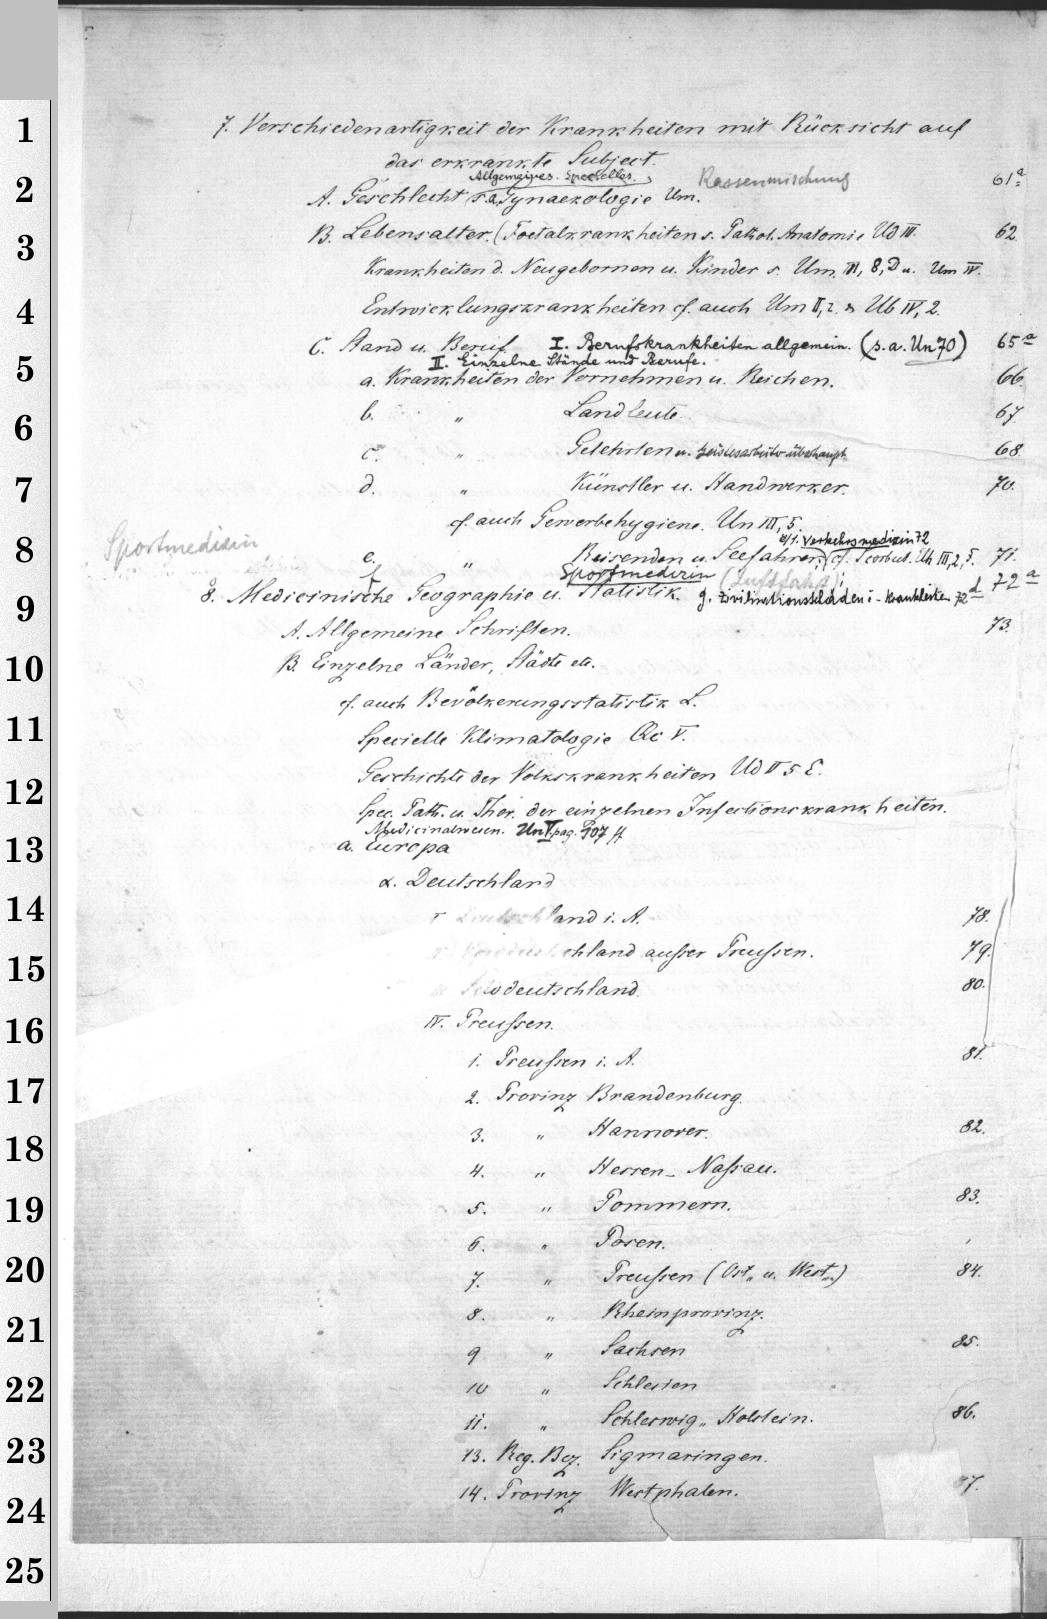 1
2
3
4
5
6
7
8
9
10
11
12
13
14
15
16
17
18
19
20
21
22
23
24
25
7. Verschiedenartigkeit der Krankheiten mit Rücksicht auf
das erkrankte Subject.
Allgemeines. Specielles. Rassenmischung 61a
A. Geschlecht (s.a. Gynaekologie Um.
B. Lebensalter. (Foetalkrankheiten s. Pathol. Anatomie Ud III. 62
Krankheiten d. Neugebornen u. Kinder s. Um. III, 8, D u. Um IV.
Entwicklungskrankheiten cf. auch Um II, 2. & Ub IV, 2.
C. Stand u. Beruf I. Berufskrankheiten allgemein. (s.a. Un 70) 65a
II. Einzelne Stände und Berufe.
a. Krankheiten der Vornehmen u. Reichen. 66
b. " Landleute. 67
c. " Gelehrten u. Geistesarbeiter überhaupt 68
d. " Künstler u. Handwerker. 70.
cf. auch Gewerbehygiene. Un III, 5.
Sportmedizin
Verkehrsmedizin 72
e. " Reisenden u. Seefahrer. cf. Scorbut. Uh III, 2, 5. 71.
f. Sportmedizin (Luftfahrt) 72a
8. Medicinische Geographie u. Statistik. g. Zivilisationsschäden u. -krankheiten 72d
A. Allgemeine Schriften. 73.
B. Einzelne Länder, Städte etc.
cf. auch Bevölkerungsstatistik L.
Specielle Klimatologie Qc V.
Geschichte der Volkskrankheiten Ud II 5 E.
Spec. Path. u. Ther. der einzelnen Infectionskrankheiten.
Medicinalwesen. Un V pag. 107 ff
a. Europa
α. Deutschland
I Deutschland i. A. 78.
chland ausser Preussen. 79.
Süddeutschland. 80.
IV. Preussen.
1. Preussen i. A. 81.
2. Provinz Brandenburg.
3. " Hannover. 82.
4. " Hessen-Nassau.
5. " Pommern. 83.
6. " Posen.
7. " Preussen (Ost- u. West-) 84.
8. " Rheinprovinz.
9 " Sachsen 85.
10 " Schlesien
11. " Schleswig-Holstein. 86.
13. Reg. Bez. Sigmaringen.
14. Provinz Westphalen. 87.